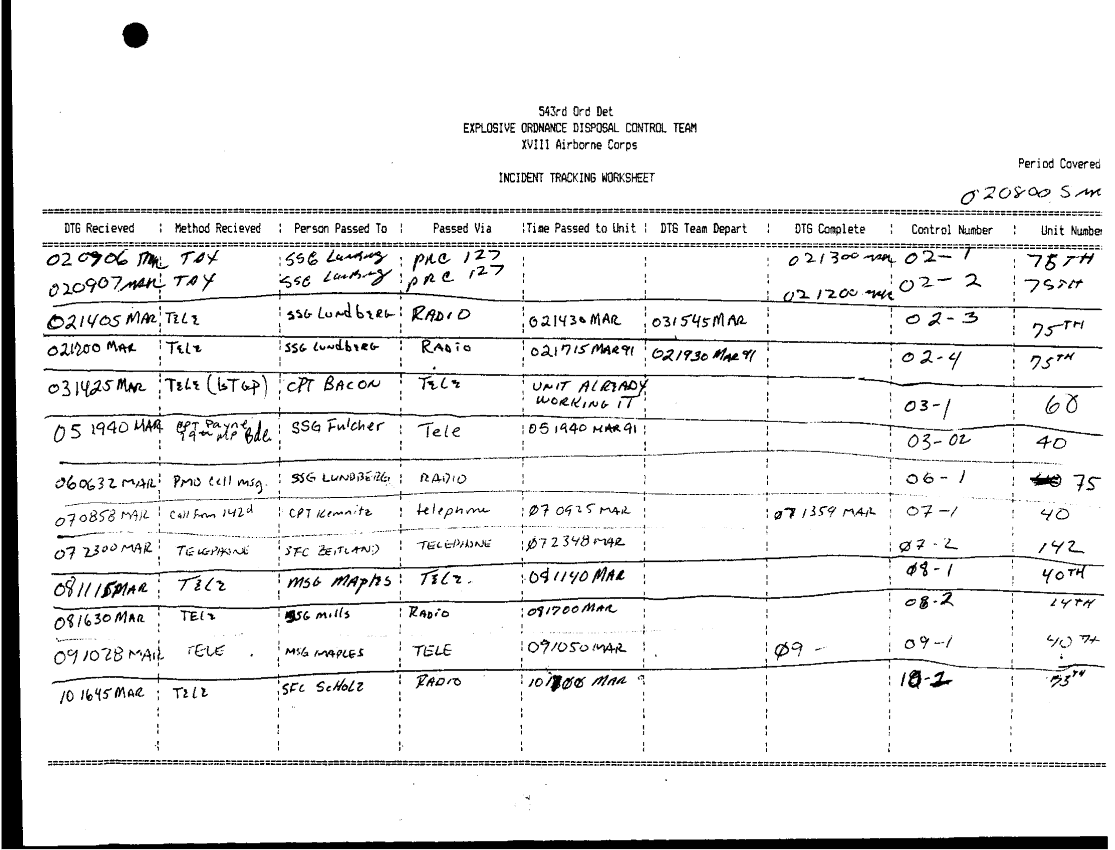 543rd Ord Det
EXPLOSIVE ORDNANCE DISPOSAL CONTROL TEAM
XVIII Airborne Corps
Period Covered
INCIDENT TRACKING WORKSHEET
020800
DTG Recieved Method Recieved Person Passed To Passed Via Time Passed to Unit DTG Team Depart DTG Complete Control Number Unit Number
020906 SSG PRC 127 021300 02-1 75TH
020907 MAR SSG PRC 127 021200 02-2 75TH
021405 MAR TELE SSG Lundberg RADIO 021430 MAR 031545 MAR 02-3 75TH
MAR TELE SSG Lundberg Radio 021715 MAR 91 021930 MAR 91 02-4 75TH
031425 MAR TELE CPT BACON TELE UNIT ALREADY
WORKING IT 03-1 60
051940 MAR CPT Payne Bde SSG Fulcher Tele 051940 MAR 91 03-02 40
060632 MAR PMO Cell msg. SSG LUNDBERG RADIO 06-1 75
070858 MAR Call from 142d CPT Kemnitz telephone 070925 MAR 071359 MAR 07-1 40
072300 MAR TELEPHONE SFC ZEITLAND TELEPHONE 072348 MAR 07-2 142
081115 MAR TELE MSG MAPLES TELE. 081140 MAR 08-1 40TH
081630 MAR TELE SSG Mills RADIO 081700 MAR 08-2 14TH
091028 MAR TELE MSG MAPLES TELE 091050 MAR 09 - 09-1 40TH
101645 MAR TELE SFC SCHOLZ RADIO MAR